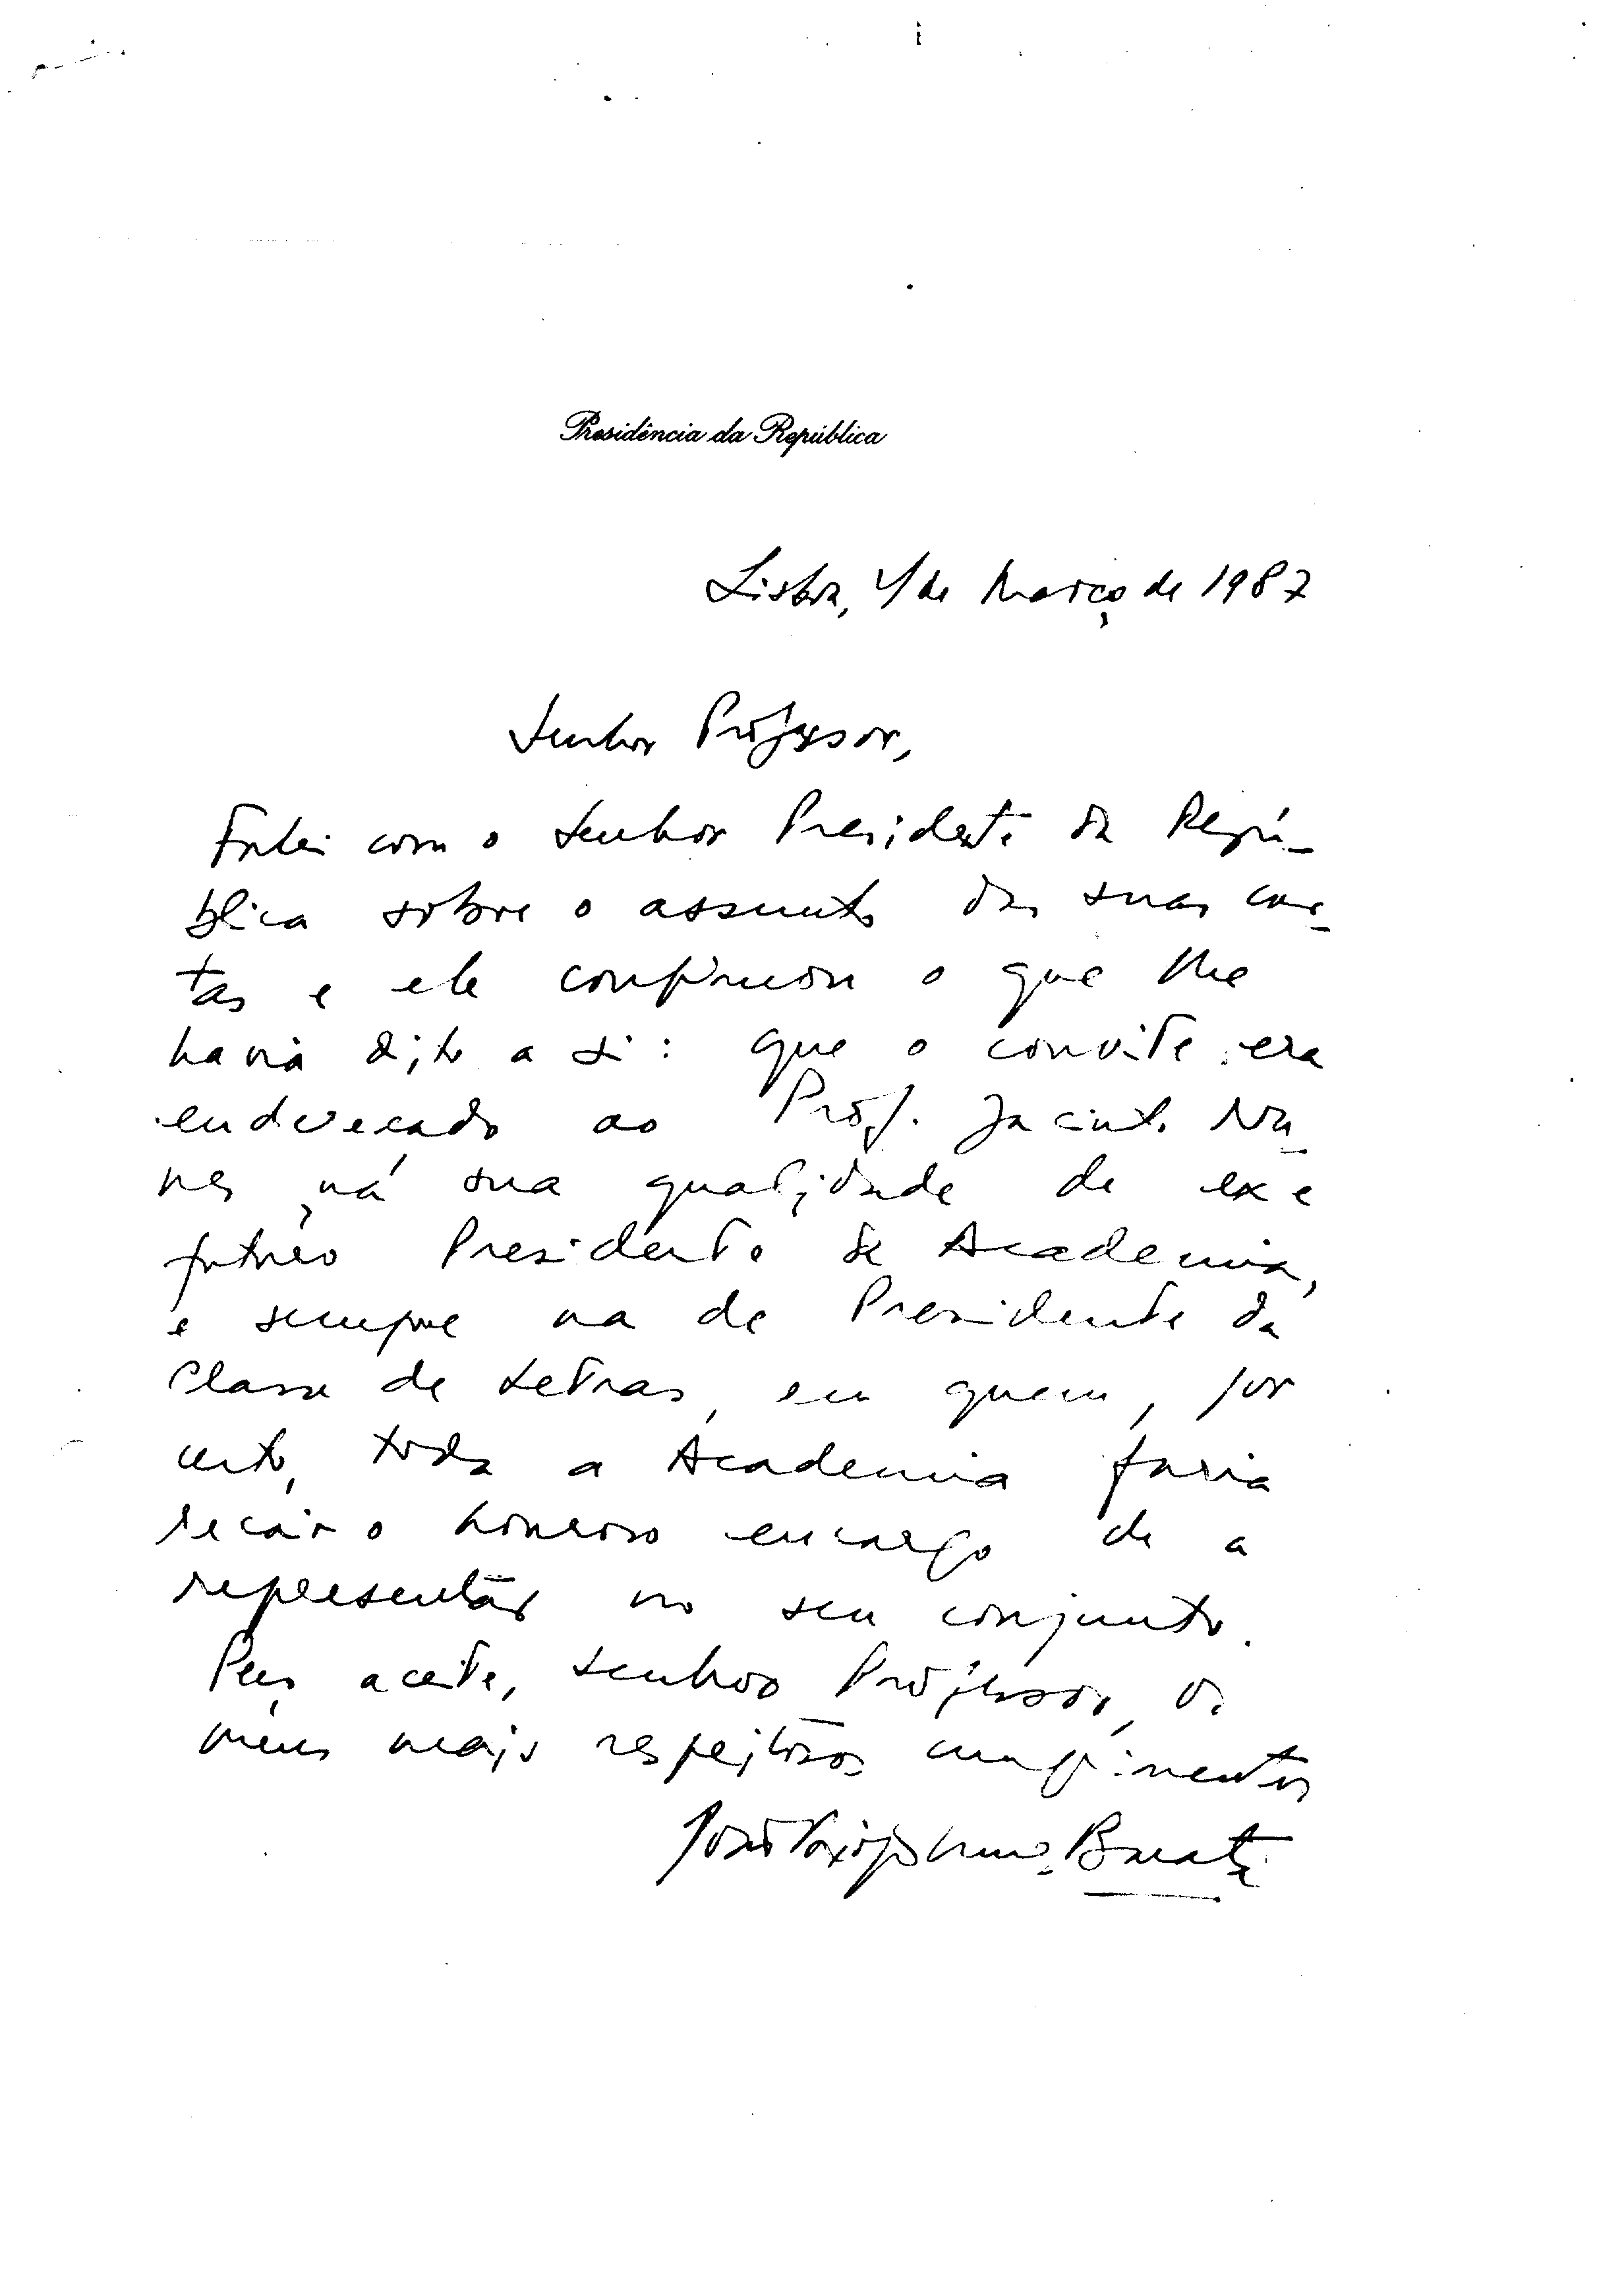 Presidência da República
Lisboa, 4 de Março de 1987
Senhor Professor,
Falei com o Senhor Presidente da Repú-
blica sobre o assunto das suas car-
tas e ele confirmou o que lhe
havia dito a si: que o convite era
endereçado ao Prof. Jacinto Nu-
nes, na sua qualidade de ex e
futuro Presidente da Academia,
e sempre na de Presidente da
Classe de Letras, em quem, por
certo, toda a Academia faria
recair o honroso encargo de a
representar no seu conjunto.
Peço aceite, Senhor Professor, os
meus mais respeitosos cumprimentos
Nuno Barata